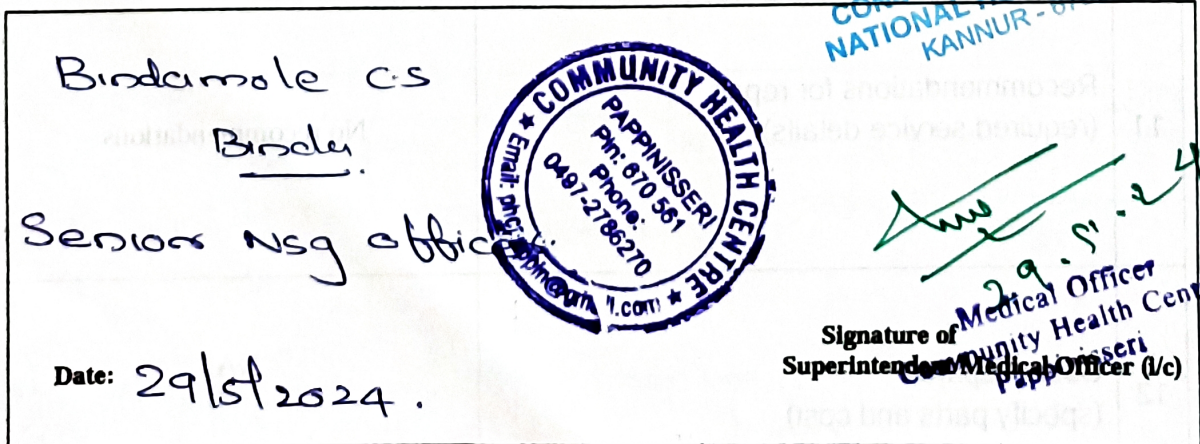 NATIONAL
KANNUR -
Bindumole CS
Bindu
Senior Nsg officer
COMMUNITY HEALTH CENTRE
PAPPINISSERI
Pin: 670 561
Phone:
0497-2786270
Email:
29.5.24
Medical Officer
Community Health Cent
Pappinisseri
Signature of
Superintendent Medical Officer (I/c)
Date: 29/5/2024.